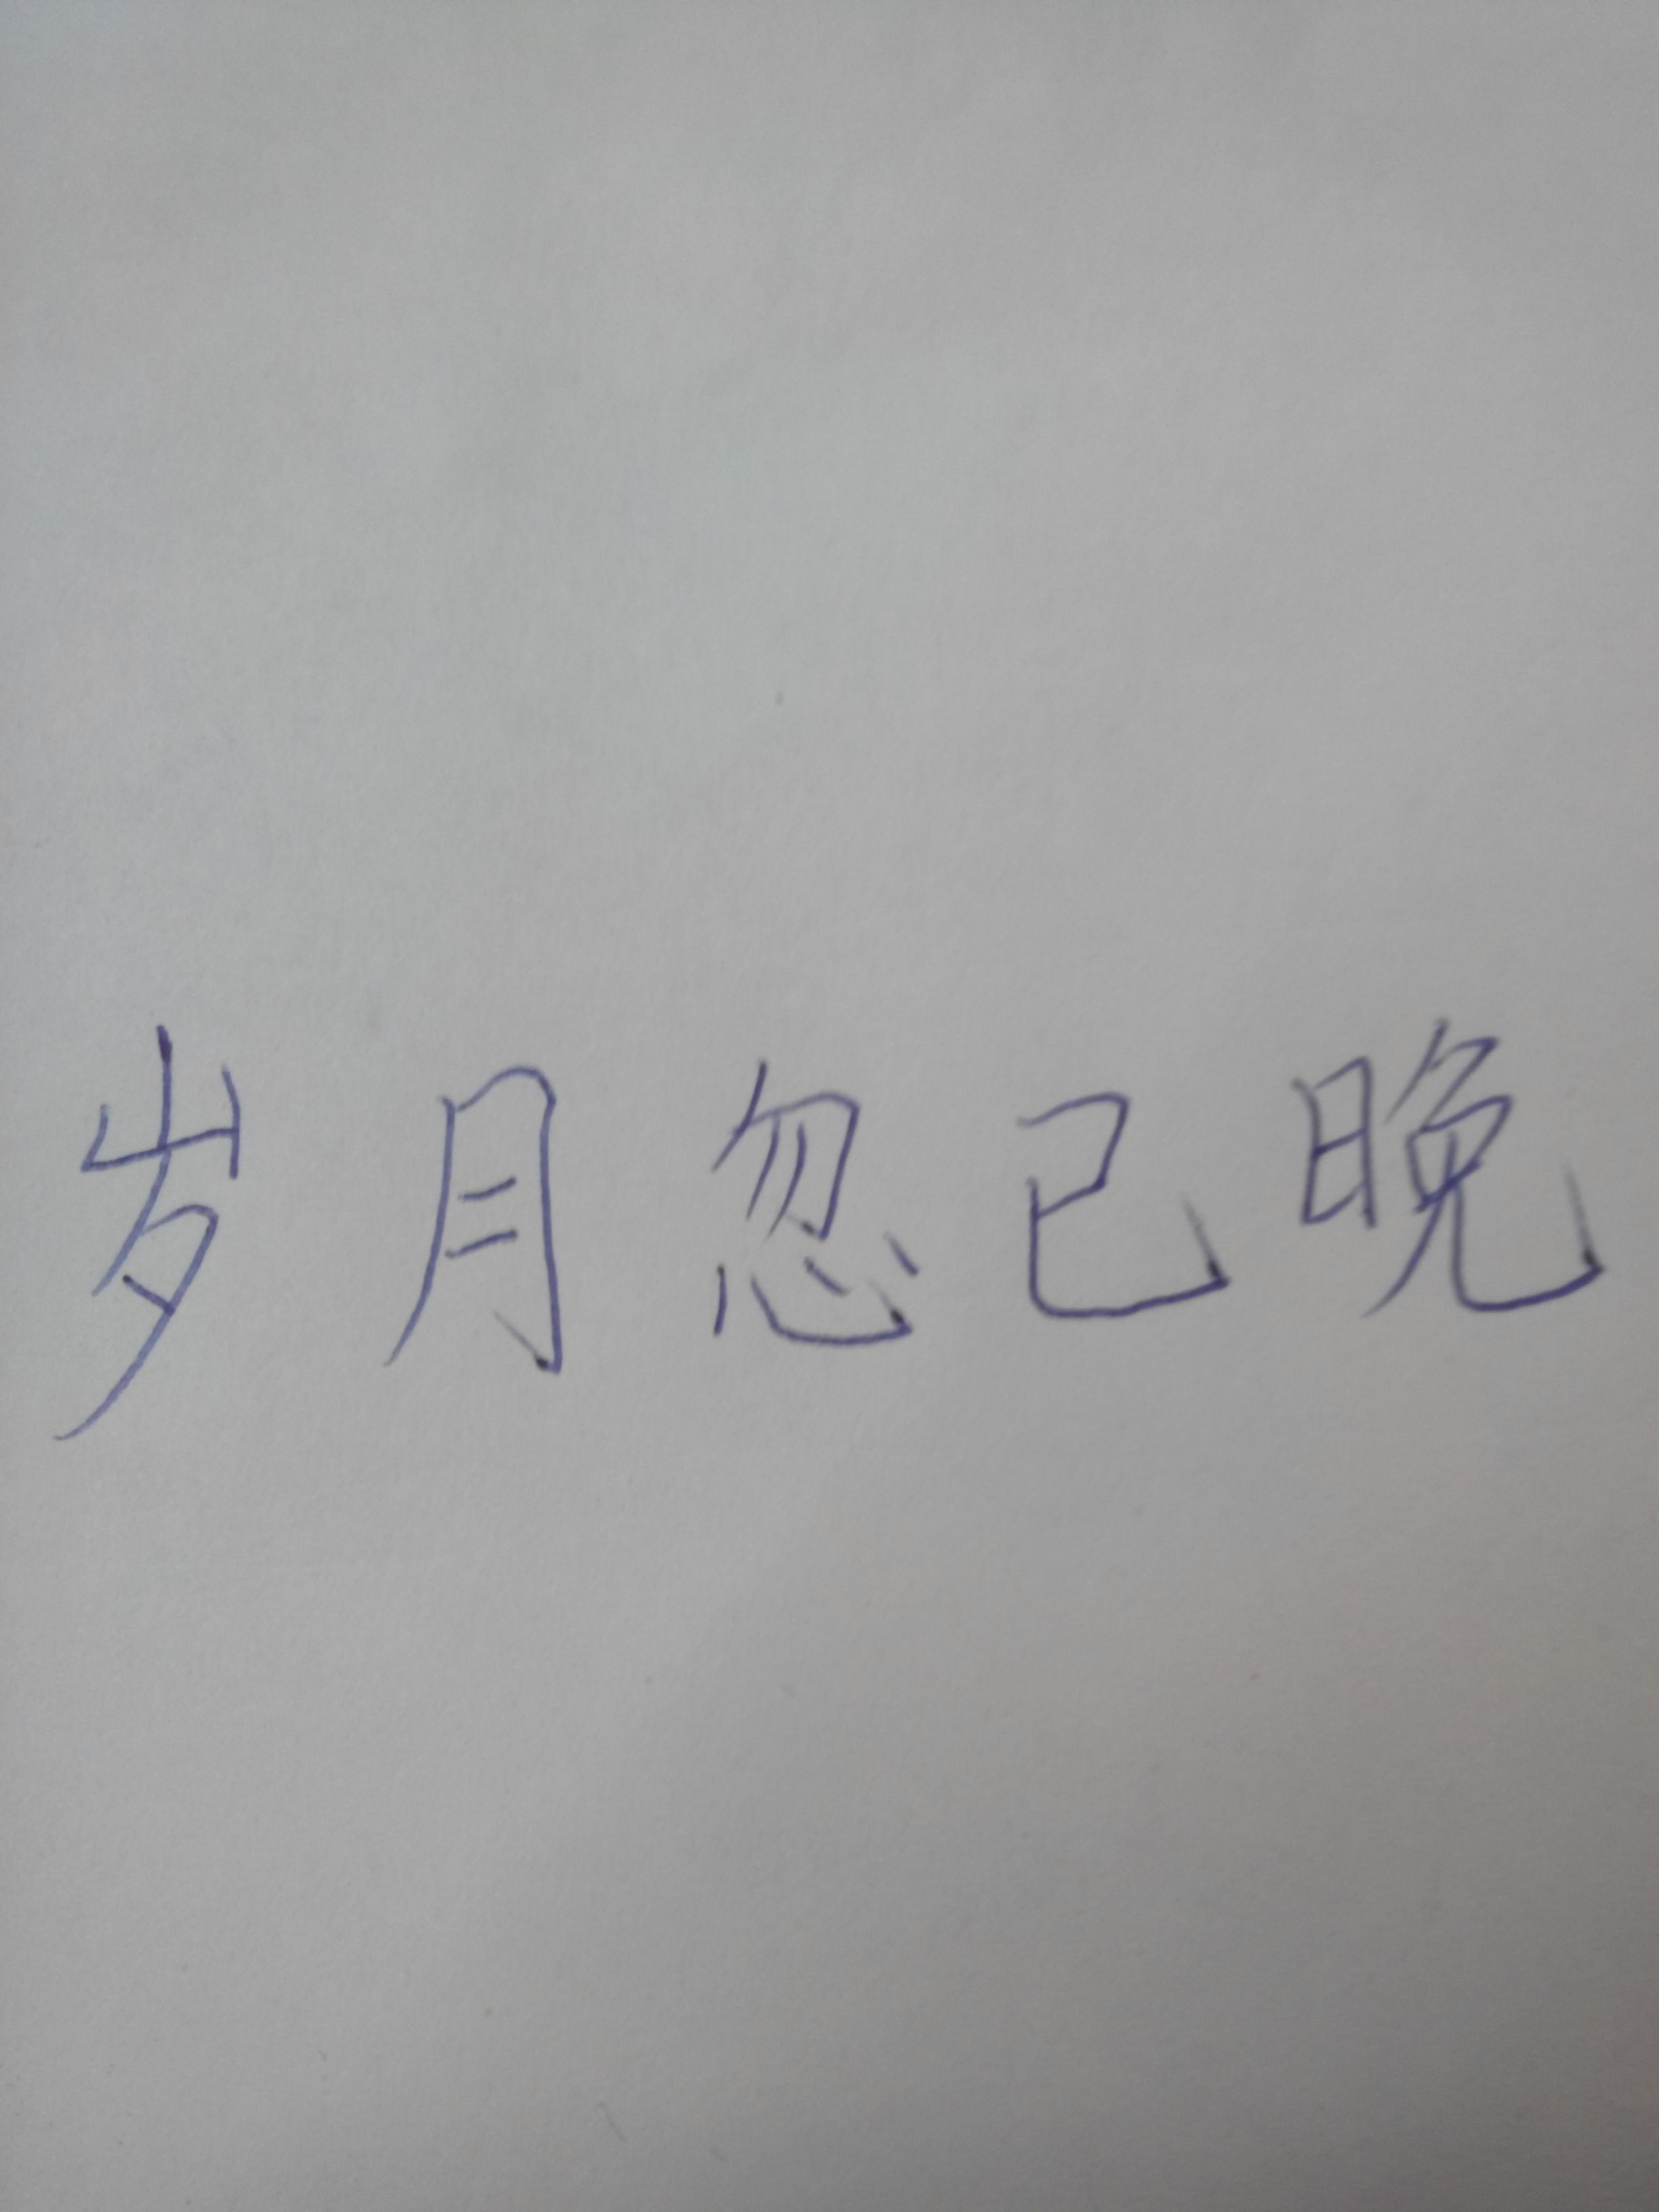 岁月忽已晚